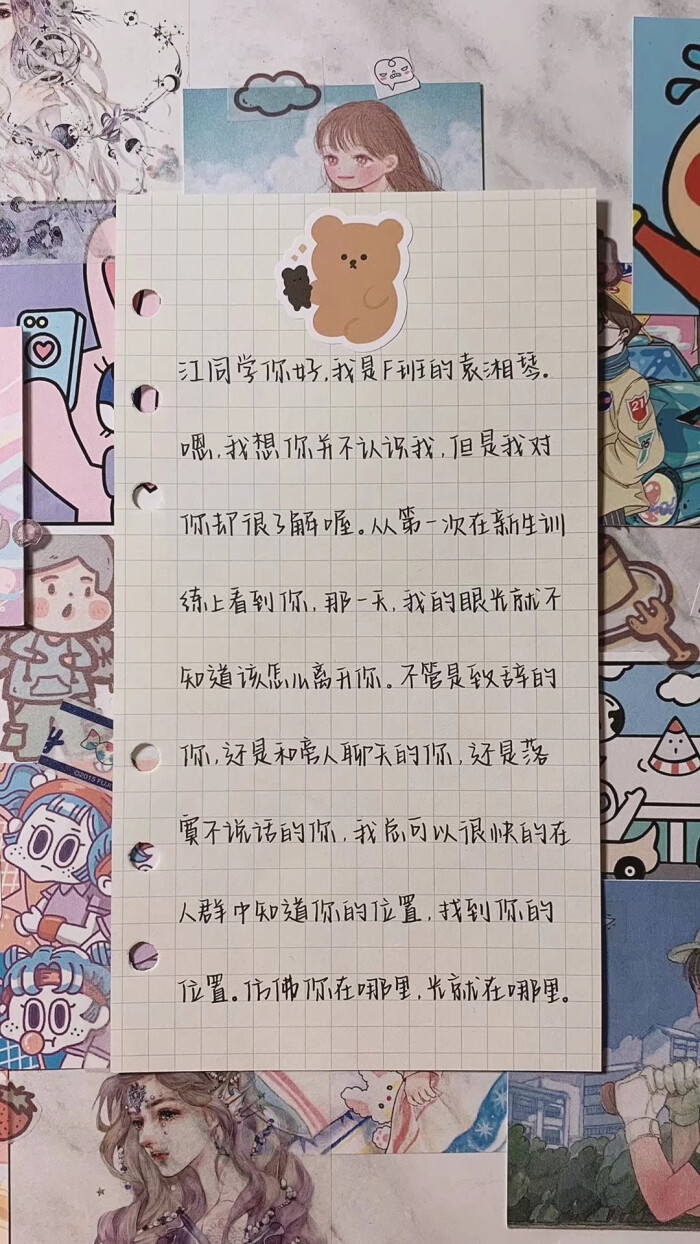 江同学你好,我是F班的袁湘琴。
嗯,我想你并不认识我,但是我对
你却很了解喔。从第一次在新生训
练上看到你,那一天,我的眼光就不
知道该怎么离开你。不管是致辞的
你,还是和旁人聊天的你,还是落
寞不说话的你,我总可以很快的在
人群中知道你的位置,找到你的
位置。仿佛你在哪里,光就在哪里。
21
©2015 FUJ